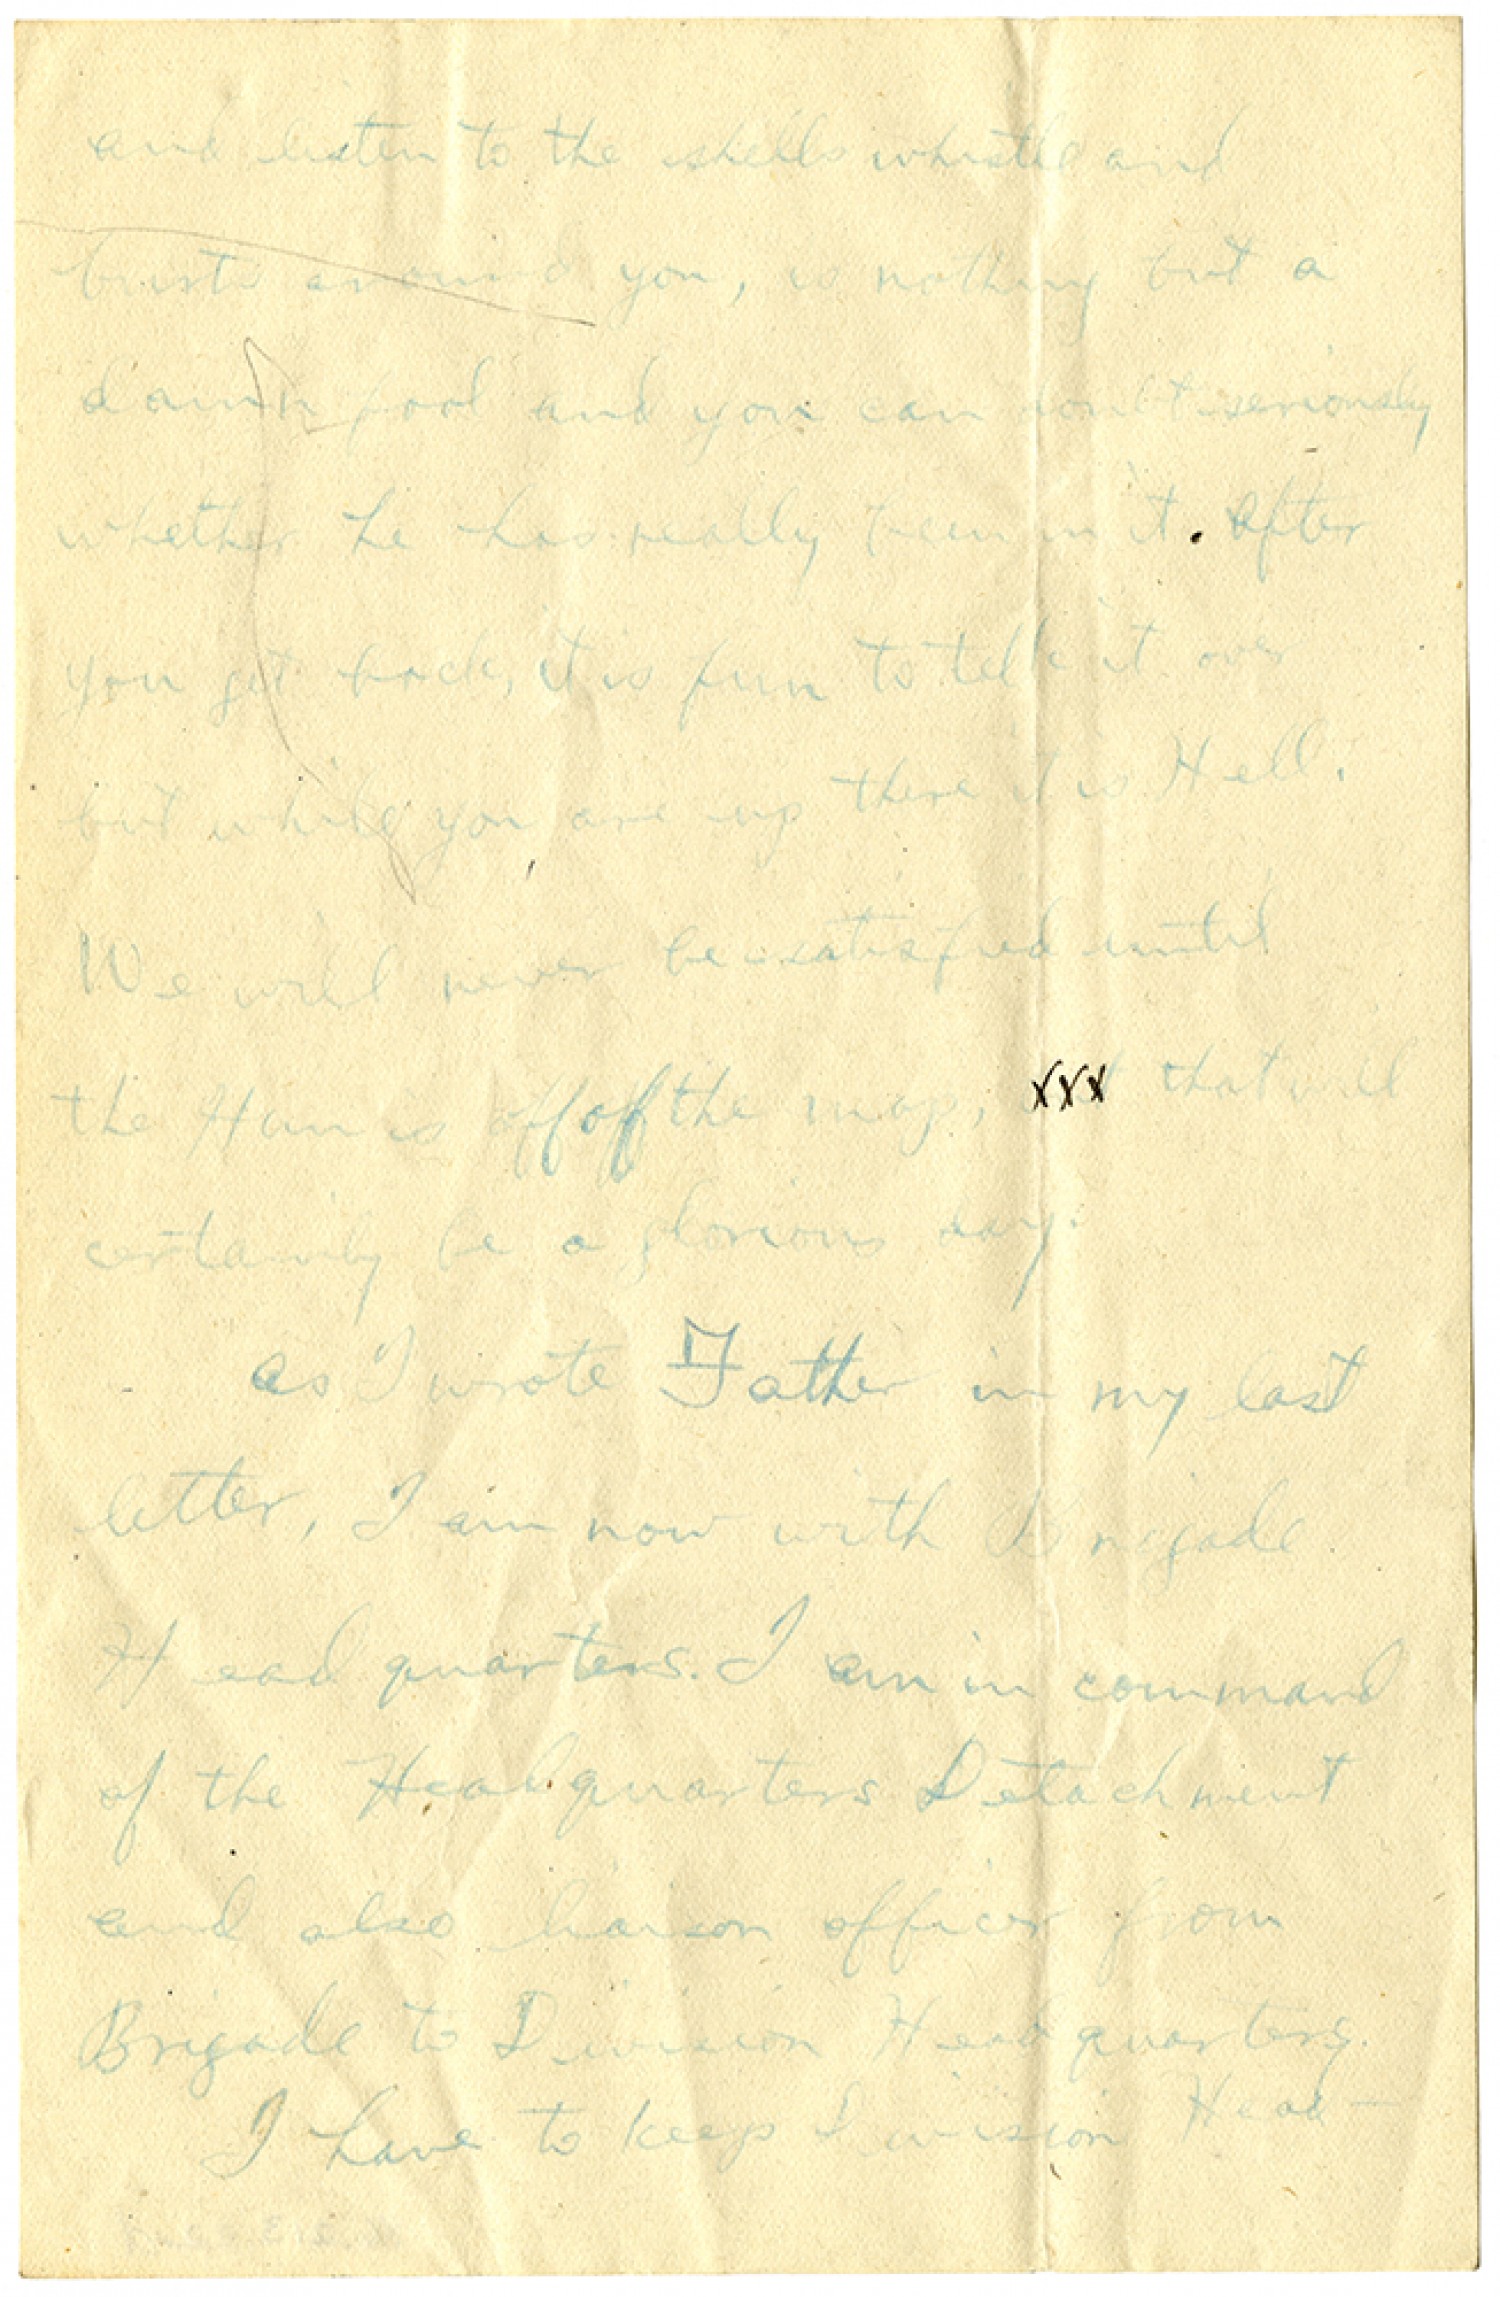 and listen to the shells whistle and
bursts around you, is nothing but a
damn fool and you can doubt seriously
whether he has really been in it. After
you get back, it is fun to talk it over
but while you are up there it is Hell.
We will never be satisfied until
the Hun is off of the map, xxx that will
certainly be a glorious day.
As I wrote Father in my last
letter, I am now with Brigade
Headquarters. I am in command
of the Headquarters Detachment
and also liaison officer from
Brigade to Division Headquarters.
I have to keep Division Head-